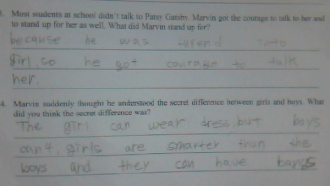 3. Most students at school didn't talk to Patsy Gatsby. Marvin got the courage to talk to her and
to stand up for her as well. What did Marvin stand up for?
because he was
girl, so he got courage to talk
her.
4. Marvin suddenly thought he understood the secret difference between girls and boys. What
did you think the secret difference was?
The girl can wear dress, but boys
can't, girls are smarter than the
boys and they can have